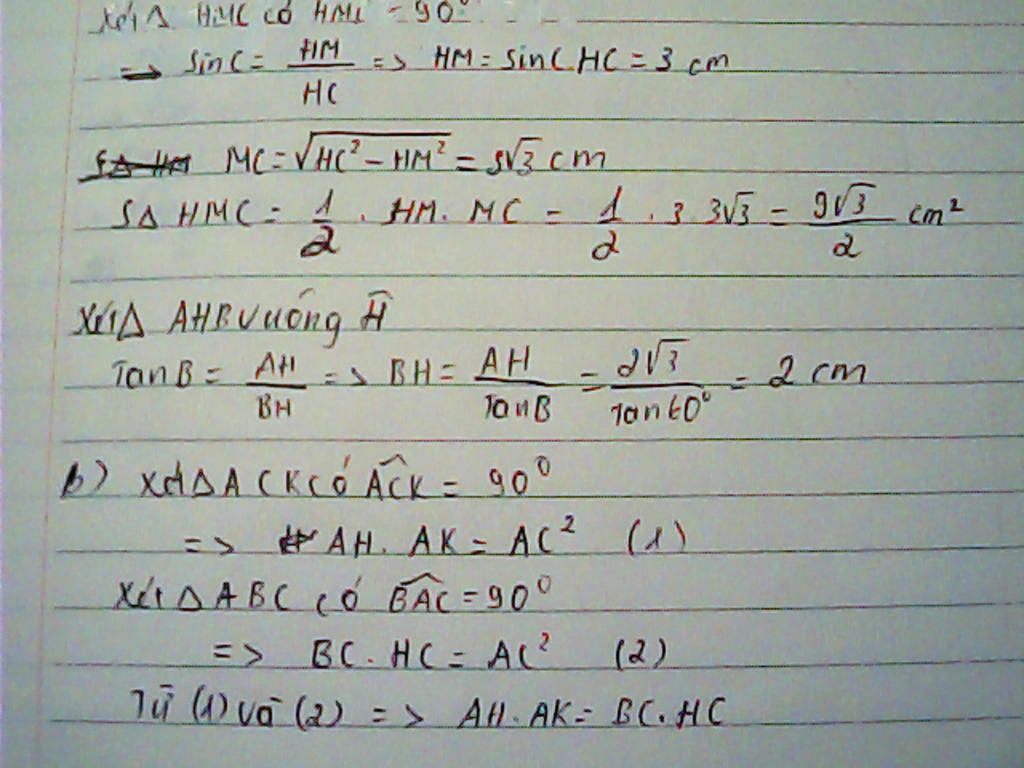 Xét Δ HMC có HMC = 90°
=> SinC = HM/HC => HM = SinC.HC = 3 cm
MC = √(HC² - HM²) = 3√3 cm
SΔ HMC = 1/2 . HM. MC = 1/2 . 3 . 3√3 = 9√3/2 cm²
Xét Δ AHB vuông Ĥ
TanB = AH/BH => BH = AH/TanB = 2√3/Tan60° = 2 cm
b) xét Δ ACK có ACK = 90°
=> AH. AK = AC² (1)
Xét Δ ABC có BAC = 90°
=> BC. HC = AC² (2)
Từ (1) và (2) => AH.AK = BC.HC